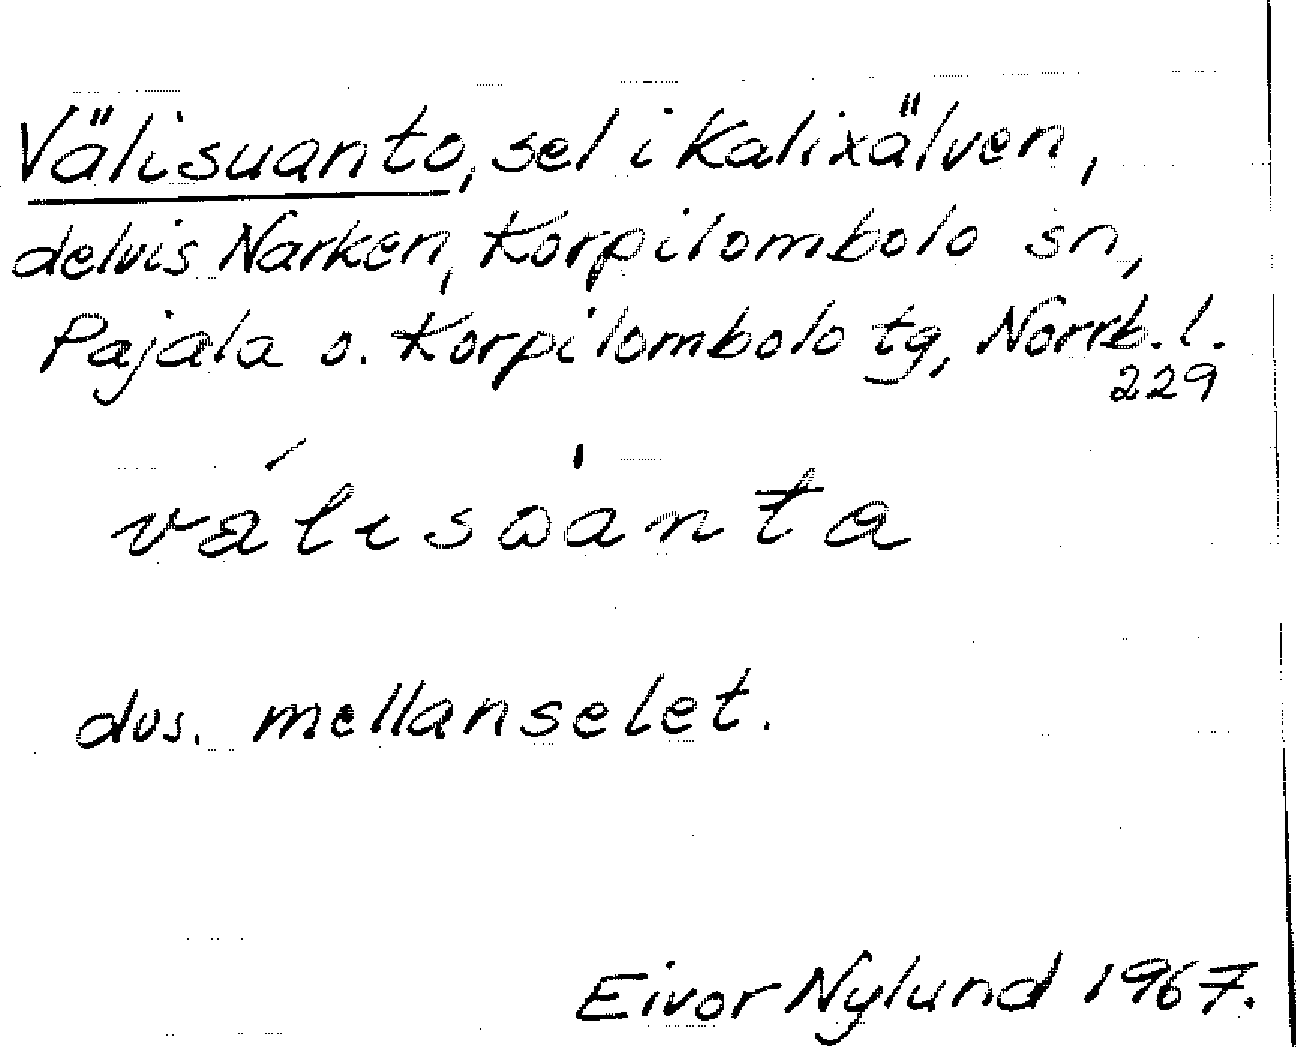 Välisuanto, sel i Kalixälven,
delvis Narken, Korpilombolo sn,
Pajala o. Korpilombolo tg, Norrb. l.
229
dvs. mellanselet.
Eivor Nylund 1967.